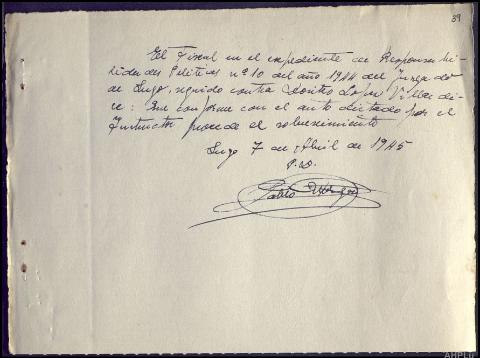 89
El Fiscal en el expediente de Responsabi-
lidades Politicas nº 10 del año 1944 del Juzgado
de Lugo, seguido contra López Villar di-
ce: Que conforme con el auto dictado por el
Instructor procede el sobreseimiento
Lugo 7 de Abril de 1945
P.D.
Pablo
AHPLU